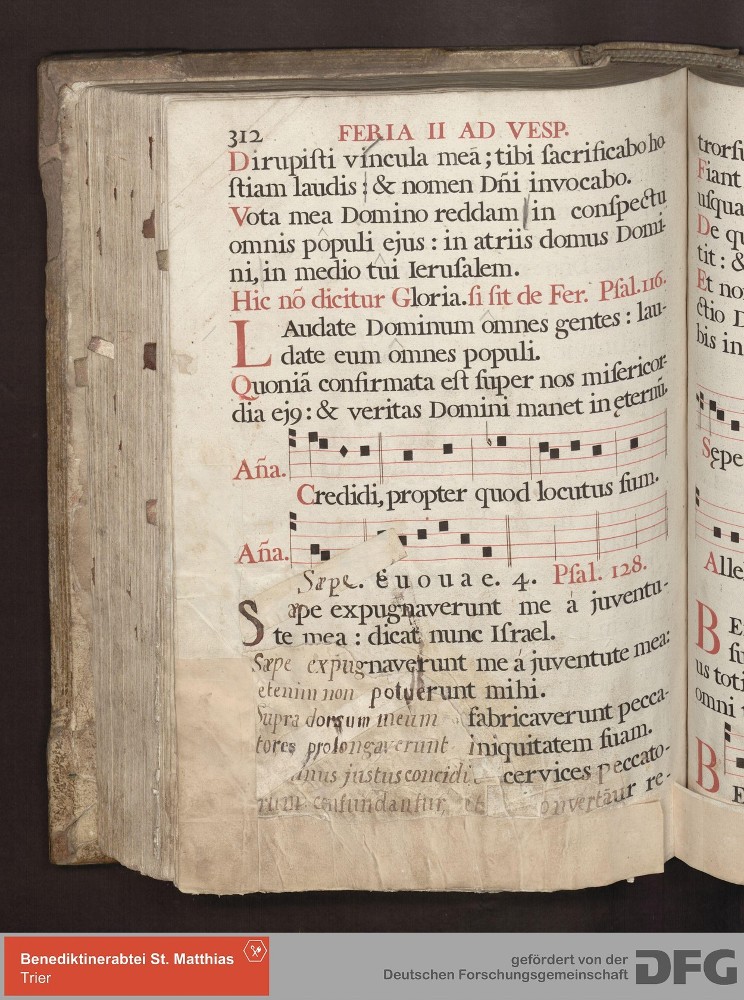 312 FERIA II AD VESP.
Dirupiſti vincula meā; tibi ſacrificabo ho-
ſtiam laudis: & nomen Dñi invocabo.
Vota mea Domino reddam in conſpectu
omnis populi ejus: in atriis domus Domi-
ni, in medio tui Ieruſalem.
Hic nō dicitur Gloria. ſi ſit de Fer. Pſal. 116.
LAudate Dominum omnes gentes: lau-
date eum omnes populi.
Quoniā confirmata eſt ſuper nos miſericor-
dia ej9: & veritas Domini manet in ęternū.
Aña.
Credidi, propter quod locutus ſum.
Aña.
Sæpe. Euouae. 4. Pſal. 128.
Sæpe expugnaverunt me á juventu-
te mea: dicat nunc Iſrael.
Sæpe expugnaverunt me á juventute mea:
etenim non potuerunt mihi.
Supra dorsum meum fabricaverunt pecca-
tores prolongaverunt iniquitatem ſuam.
justus concidi cervices peccato-
rum confundantur, et convertāur re-
trorſu
Fiant
uſqua
De qu
tit: &
Et no
ctio D
bis in
Sępe
Alle
BE
ſu
us toti
omni
B
E
Benediktinerabtei St. Matthias
Trier
gefördert von der
Deutschen Forschungsgemeinschaft
DFG